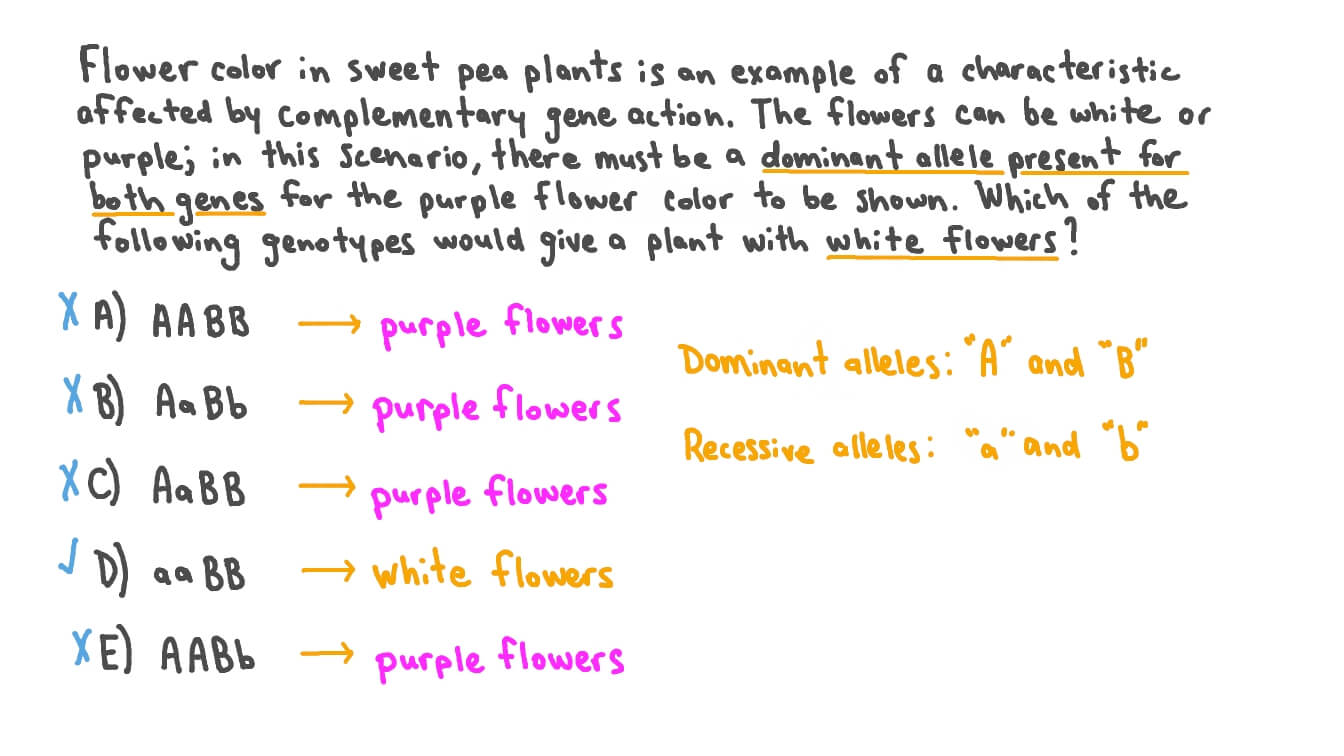 Flower color in sweet pea plants is an example of a characteristic
affected by complementary gene action. The flowers can be white or
purple; in this scenario, there must be a dominant allele present for
both genes for the purple flower color to be shown. Which of the
following genotypes would give a plant with white flowers?
X A) AABB → purple flowers
X B) AaBb → purple flowers
X C) AaBB → purple flowers
✓ D) aaBB → white flowers
X E) AABb → purple flowers
Dominant alleles: "A" and "B"
Recessive alleles: "a" and "b"